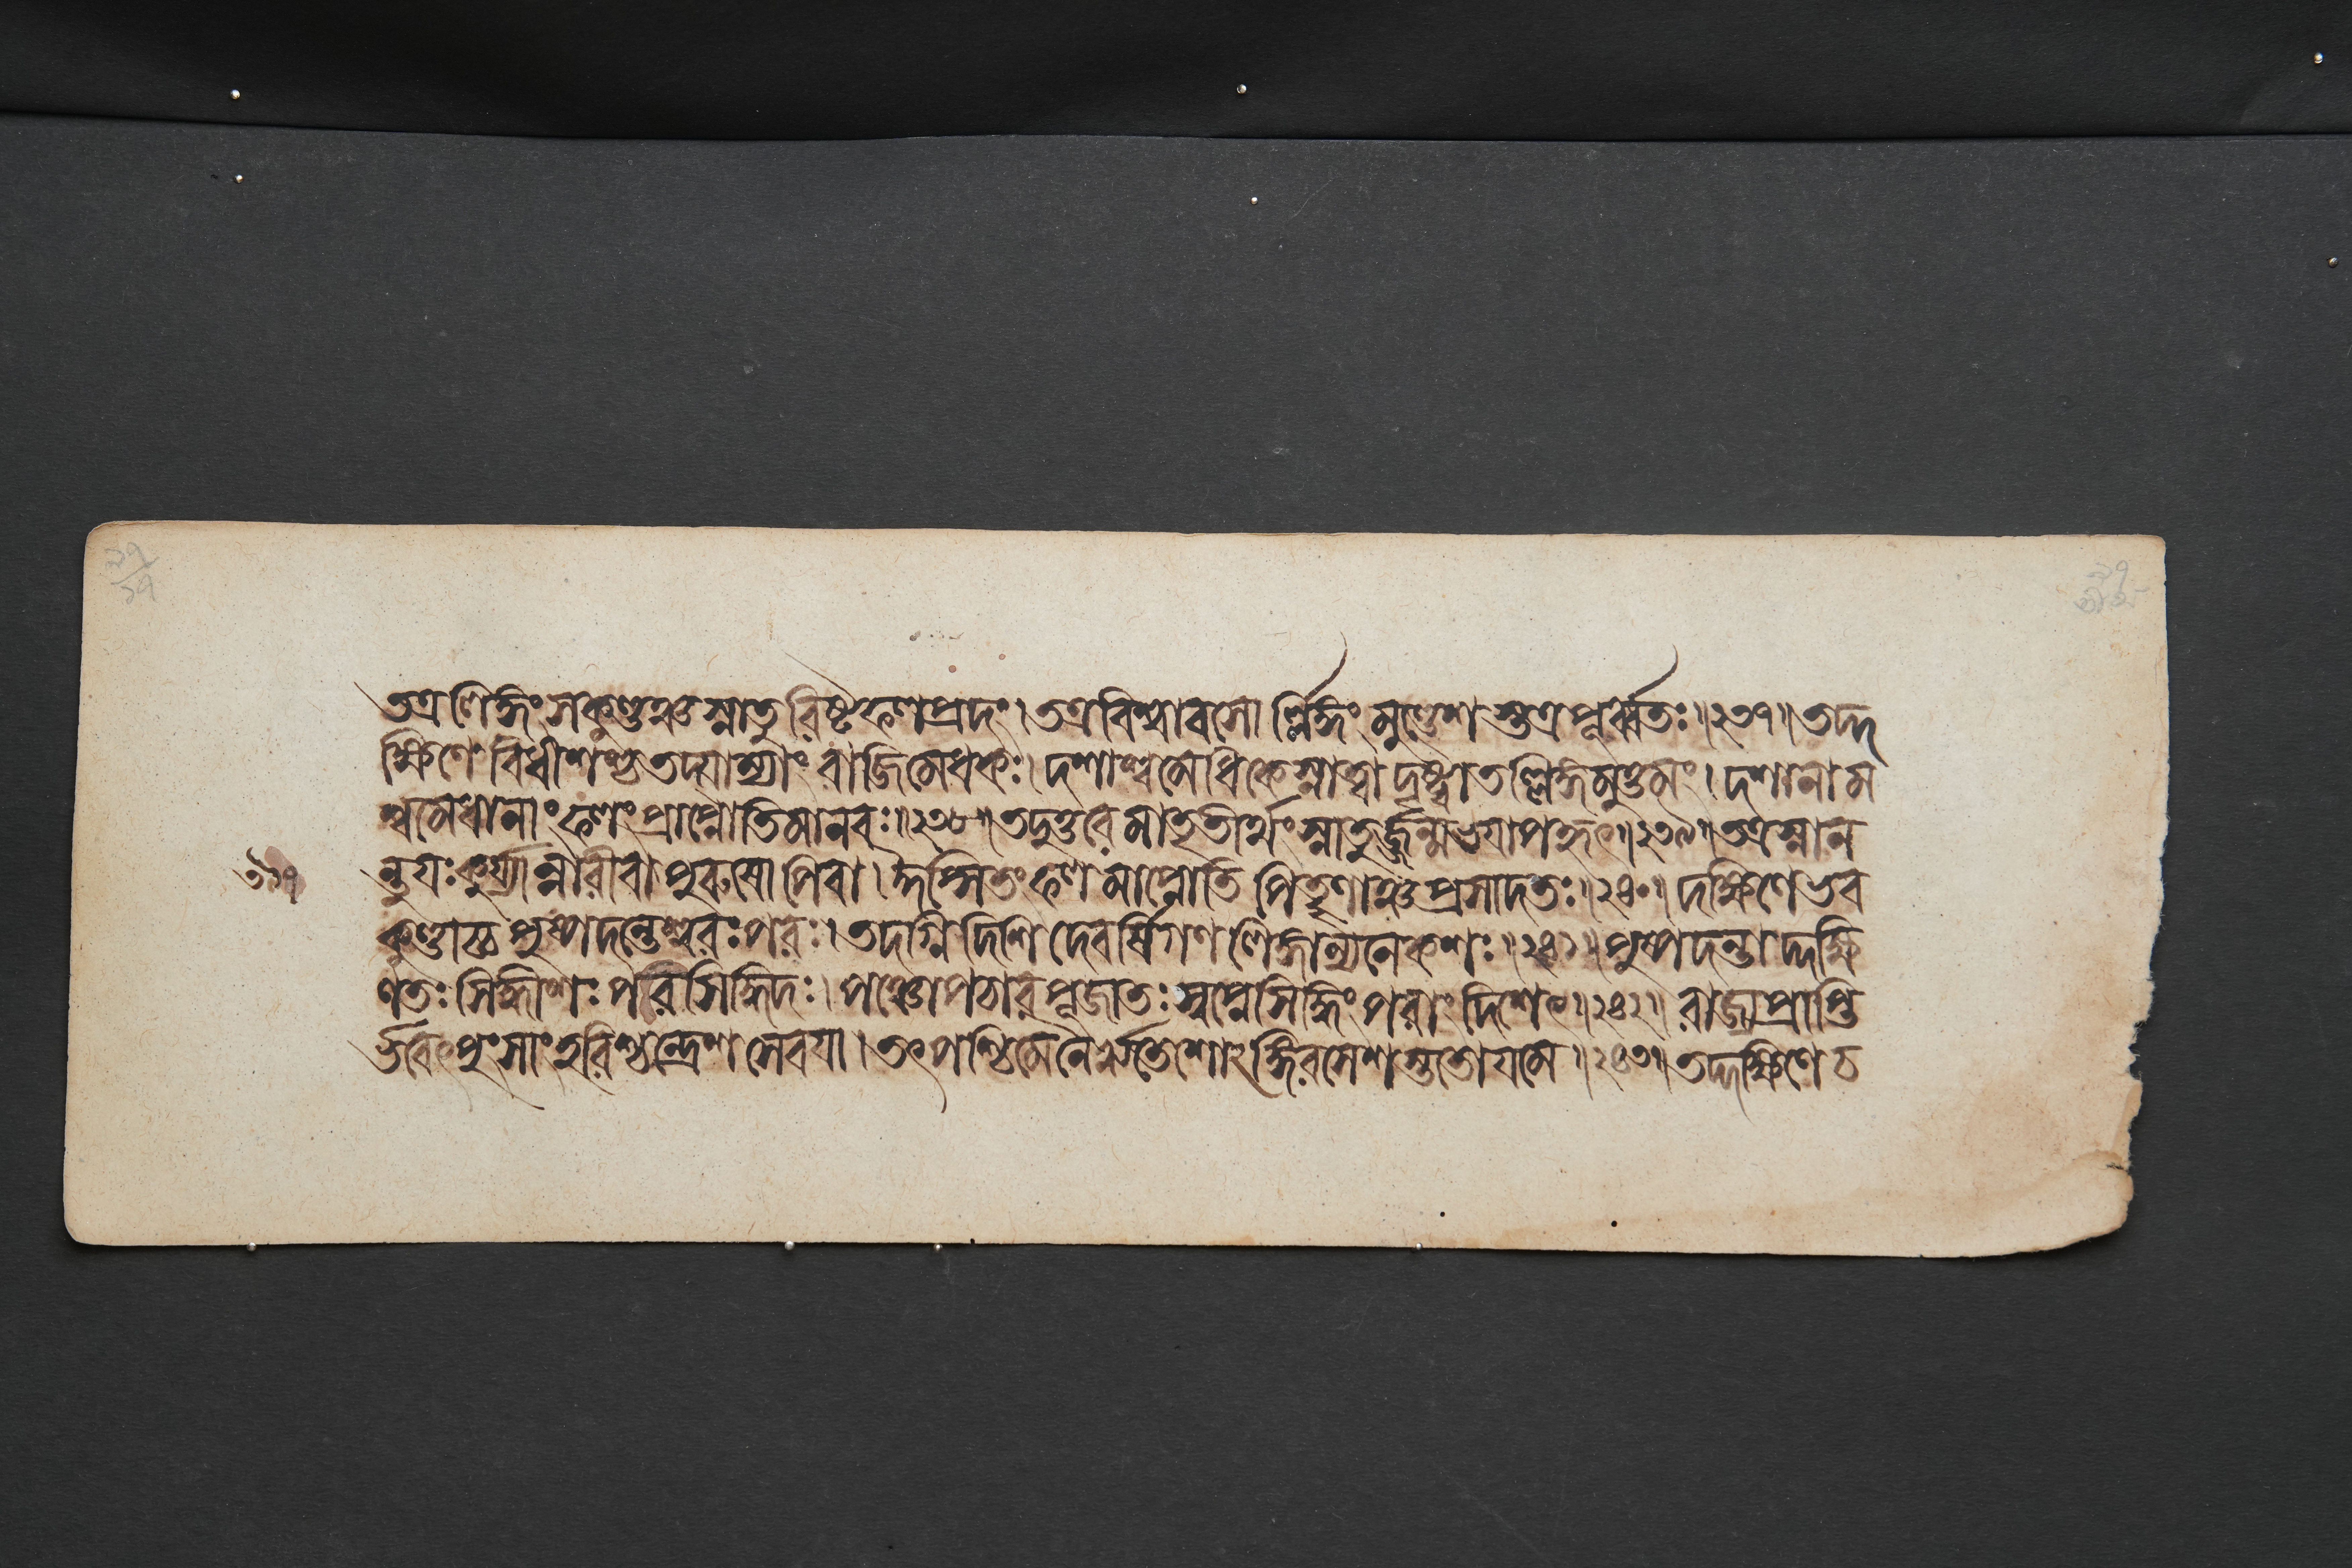 তত্রলিঙ্গং সকুণ্ডঞ্চ স্নাতুরিষ্টফলপ্রদং। তত্রবিশ্বাবসোর্ল্লিঙ্গং মুণ্ডেশস্তত্রপূর্ব্বতঃ॥২৩৭॥তদ্দ
ক্ষিণে বিধীশশ্চ তদ্যাম্যাং বাজিমেধকঃ। দশাশ্বমেধিকেস্নাত্বা দৃষ্ট্বাতল্লিঙ্গমুত্তমং। দশানাম
শ্বমেধানাং ফলং প্রাপ্নোতিমানবঃ॥২৩৮॥তদুত্তরে মাতৃতীর্থং স্নাতুর্জ্জন্মভয়াপহৃৎ॥২৩৯॥তত্রস্নান
ন্তুযঃ কুর্য্যান্নারীবা পুরুষোপিবা। ঈপ্সিতং ফলমাপ্নোতি মাতৄণাঞ্চ প্রসাদতঃ॥২৪০॥ দক্ষিণেভব
কুণ্ডাচ্চ পুষ্পদন্তেশ্বরঃ পরঃ। তদগ্নিদিশি দেবর্ষিগণ লিঙ্গান্যনেকশঃ॥২৪১॥ পুষ্পদন্তাদ্দক্ষি
ণতঃ সিদ্ধীশঃ পরিসিদ্ধিদঃ। পঞ্চোপচারপূজাতঃ স্বপ্নেসিদ্ধিং পরাং দিশেৎ॥২৪২॥ রাজ্যপ্রাপ্তি
র্ভবেৎ পুংসাং হরিশ্চন্দ্রেশ সেবয়া। তৎপশ্চিমেনৈর্ঋতেশোঽঙ্গিরসেশস্ততোযমে॥২৪৩॥ তদ্দক্ষিণে চ